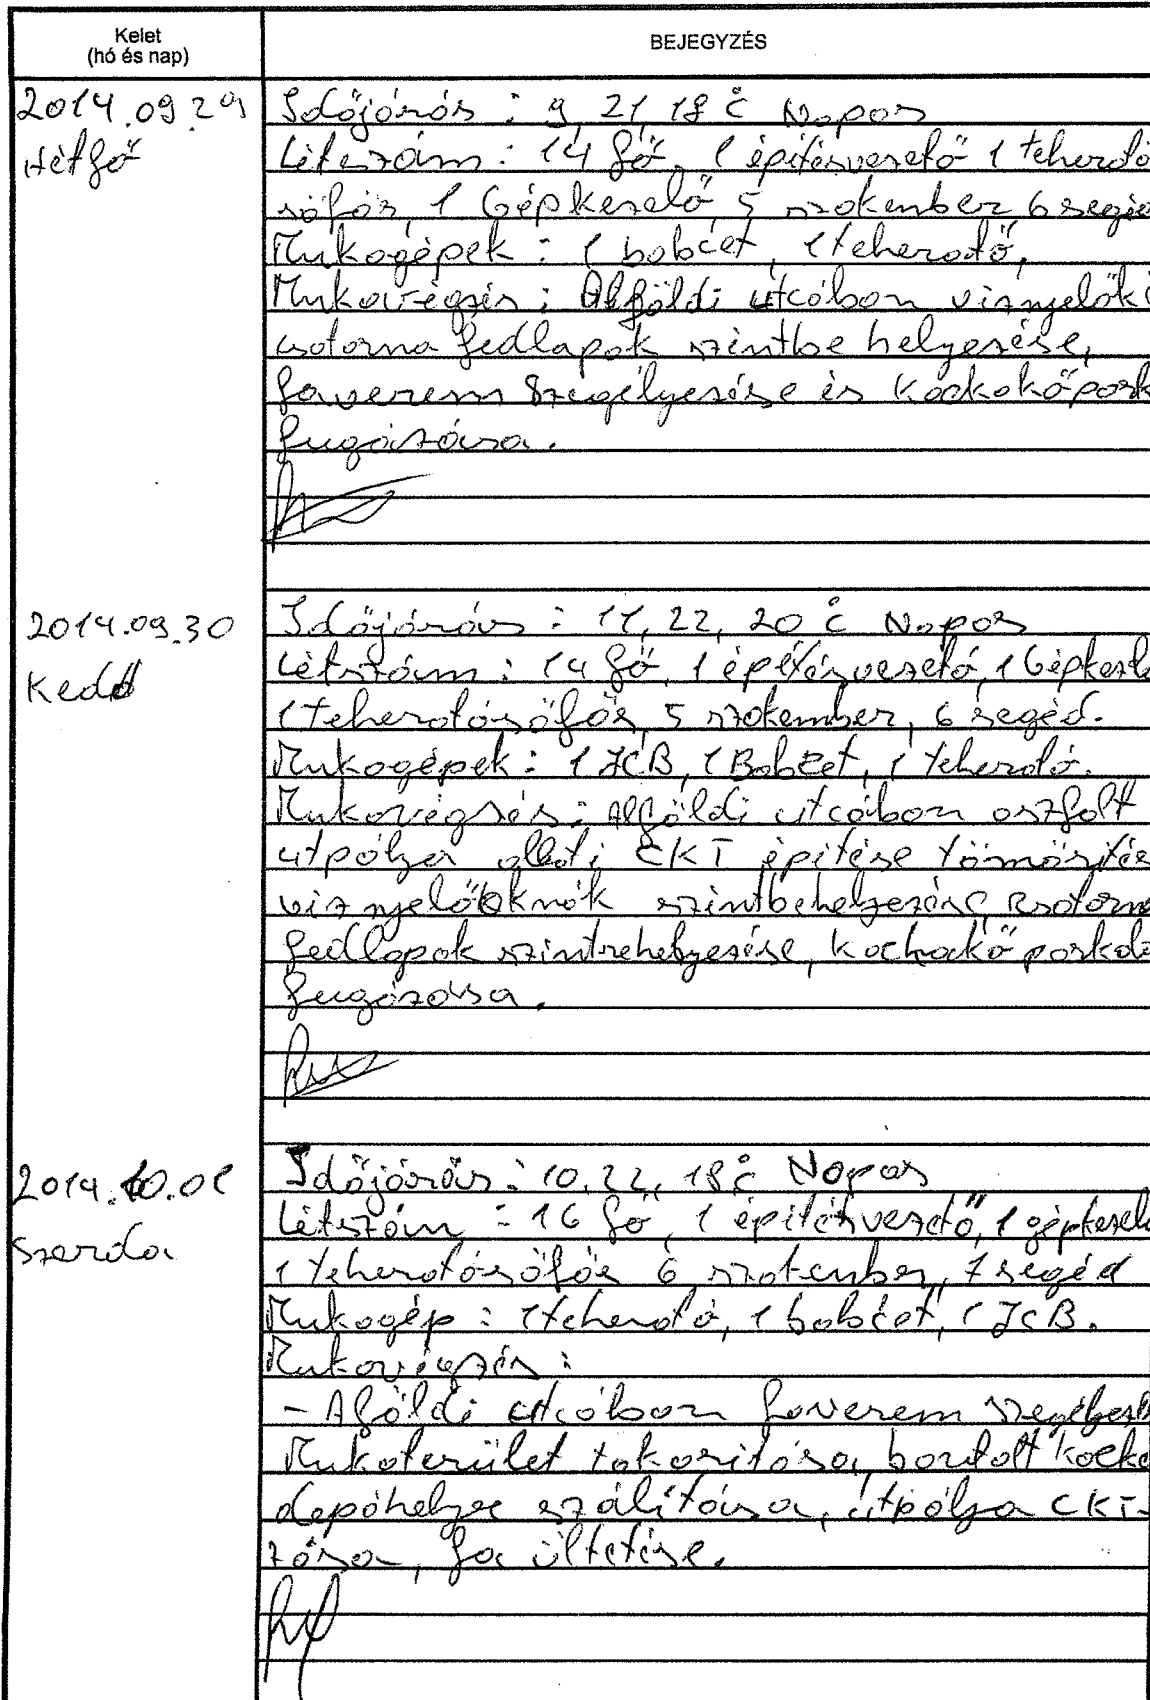 Kelet
(hó és nap)
BEJEGYZÉS
2014.09.29
Hétfő
Időjárás : 9, 21, 18 °C Napos
Létszám : 14 fő, 1 építésvezető 1 teherautó
sofőr, 1 Gépkezelő, 5 szakember 6 segéd
Munkagépek : 1 bobcet, 1 teherautó,
Munkavégzés : Alföldi utcában víznyelők
csatorna fedlapok szintbe helyezése,
faverem szegélyezése és Kockakőpork
fugázása.
2014.09.30
Kedd
Időjárás : 11, 22, 20 °C Napos
Létszám : 14 fő, 1 építésvezető, 1 Gépkezelő
1 teherautósofőr, 5 szakember, 6 segéd.
Munkagépek : 1 JCB, 1 Bobcet, 1 teherautó.
Munkavégzés : Alföldi utcában aszfalt
utpálya alatti CKT építése tömörítés
víznyelőaknák szintbehelyezése, csatorna
fedlapok szintrehelyezése, kockakő
fugázása.
2014.10.01
Szerda
Időjárás : 10, 22, 18 °C Napos
Létszám : 16 fő, 1 építésvezető, 1 gépkezelő
1 teherautósofőr 6 szakember, 7 segéd
Munkagép : 1 teherautó, 1 bobcet, 1 JCB.
Munkavégzés :
- Aföldi utcában faverem
Munkaterület takarítása, bontott kocka
depóhelyre szálítása, útpálya CKT-
zása, fa ültetése.